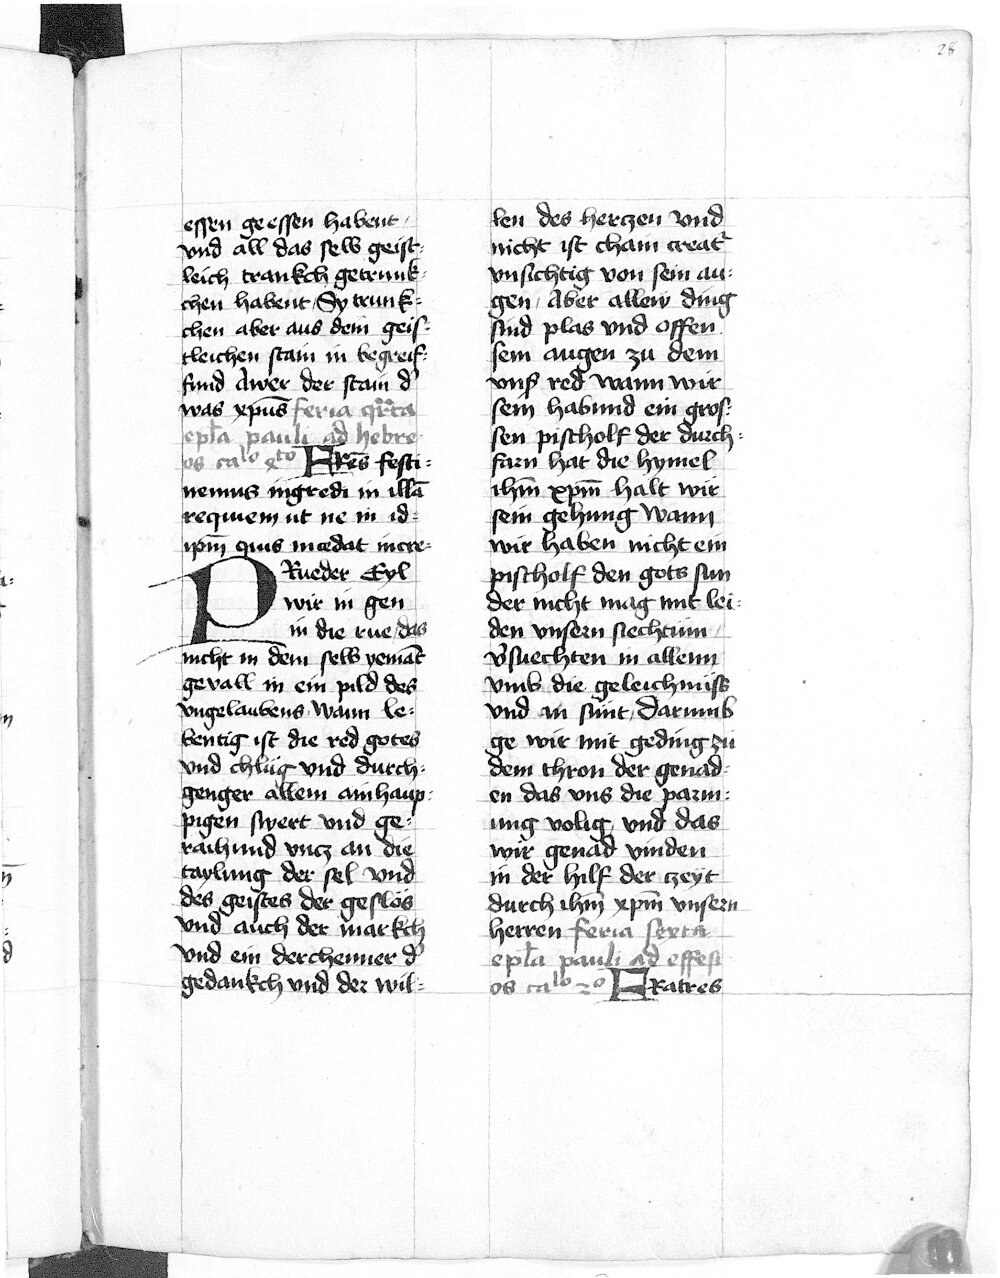 28
essen geessen habent /
vnd all das selb geist-
leich trankch getrunk-
chen habent / Sy trunk-
chen aber aus dem geis-
tleichen stain in begreif-
fund Awer der stain d'
was xpūs feria qrta
epl̄a pauli ad hebre
os calo 4to FRēs festi-
nemus ingredi in illā
requiem ut ne in id-
ipm̄ quis incedat incre-
PRueder Eyl
wir in gen
in die rue / das
nicht in dem selb yemāt
gevall in ein pild des
vngelaubens / Wann le-
bentig ist die red gotes
vnd chlüg vnd durch-
genger allem ainhaup-
pigen swert vnd ge-
raichund vncz an die
taylung der sel vnd
des geistes der geslös
vnd auch der markch
vnd ein derchenner d'
gedankch vnd der wil-
len des herczen vnd
nicht ist chain creat'
vnsichtig von sein au-
gen / Aber allew ding
sind plas vnd offen
sein augen zu dem
vns' red wann wir
sein habund ein gros-
sen pischolf der durch-
farn hat die hymel
ihm̄ xpm̄ halt wir
sein gehung Wann
wir haben nicht ein
pischolf den gots sun
der nicht mag mit lei-
den vnsern siechtum /
v'suechten in allenn
vmb die geleichniss
vnd an sünt / Darumb
ge wir mit geding zu
dem thron der genad-
en das vns die parm-
ung volig / vnd das
wir genad vinden
in der hilf der czeyt
durch ihm̄ xpm̄ vnsern
herren feria sexta
epl̄a pauli ad effesi
os calo 2o FRatres